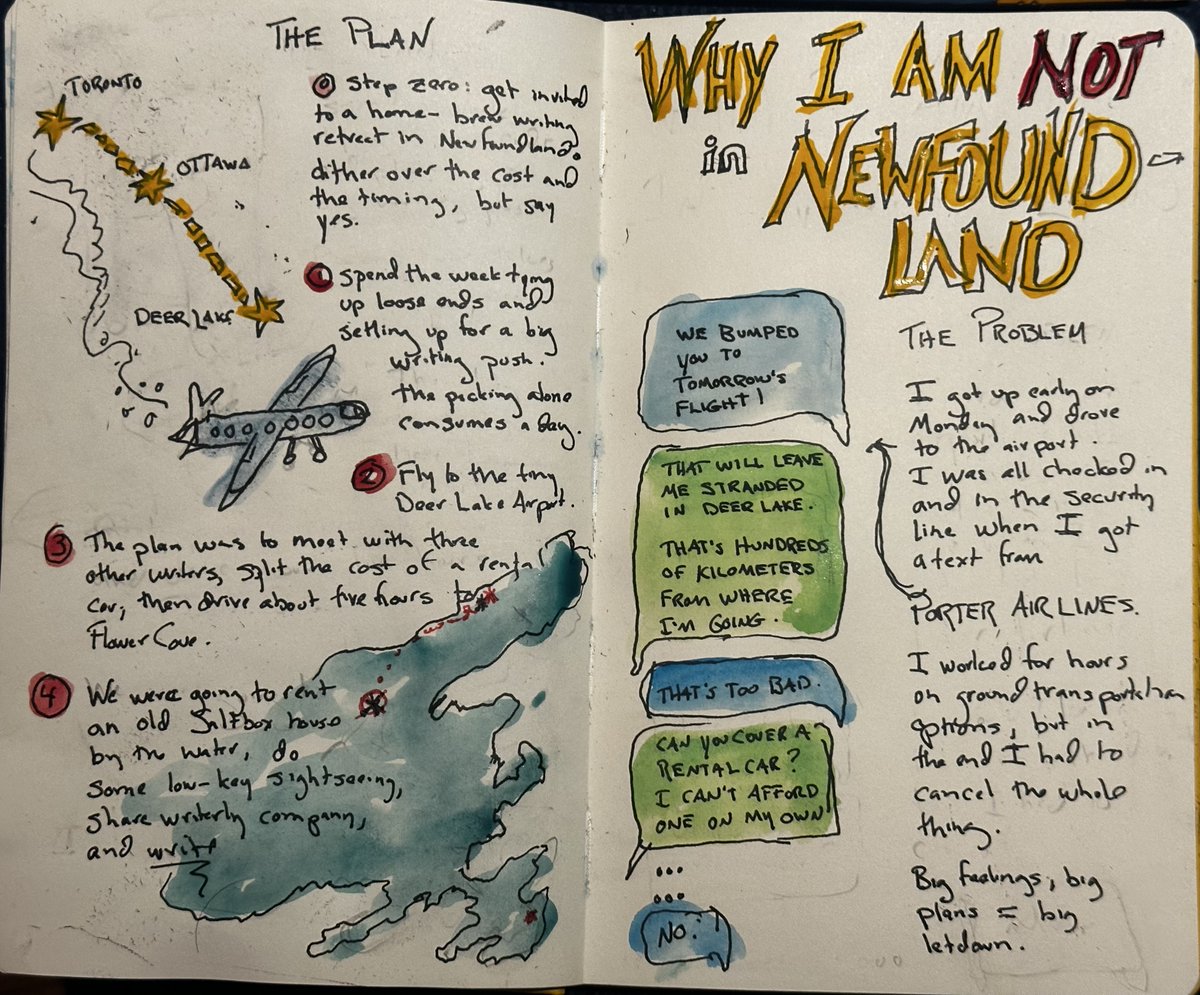 THE PLAN
TORONTO
OTTAWA
DEER LAKE
0 Step zero: get invited
to a home-brew writing
retreat in Newfoundland.
dither over the cost and
the timing, but say
yes.
1 Spend the week tying
up loose ends and
setting up for a big
writing push.
The packing alone
consumes a day.
2 Fly to the tiny
Deer Lake Airport.
3 The plan was to meet with three
other writers, split the cost of a rental
car, then drive about five hours to
Flower Cove.
4 We were going to rent
an old Saltbox house
by the water, do
some low-key sightseeing,
share writerly company,
and write
WHY I AM NOT
in NEWFOUND-
LAND
WE BUMPED
YOU TO
TOMORROW'S
FLIGHT!
THAT WILL LEAVE
ME STRANDED
IN DEER LAKE.
THAT'S HUNDREDS
OF KILOMETERS
FROM WHERE
I'M GOING.
THAT'S TOO BAD.
CAN YOU COVER A
RENTAL CAR?
I CAN'T AFFORD
ONE ON MY OWN
...
...
NO.
THE PROBLEM
I got up early on
Monday and drove
to the airport.
I was all checked in
and in the security
line when I got
a text from
PORTER AIRLINES.
I worked for hours
on ground transportation
options, but in
the end I had to
cancel the whole
thing.
Big feelings, big
plans = big
letdown.